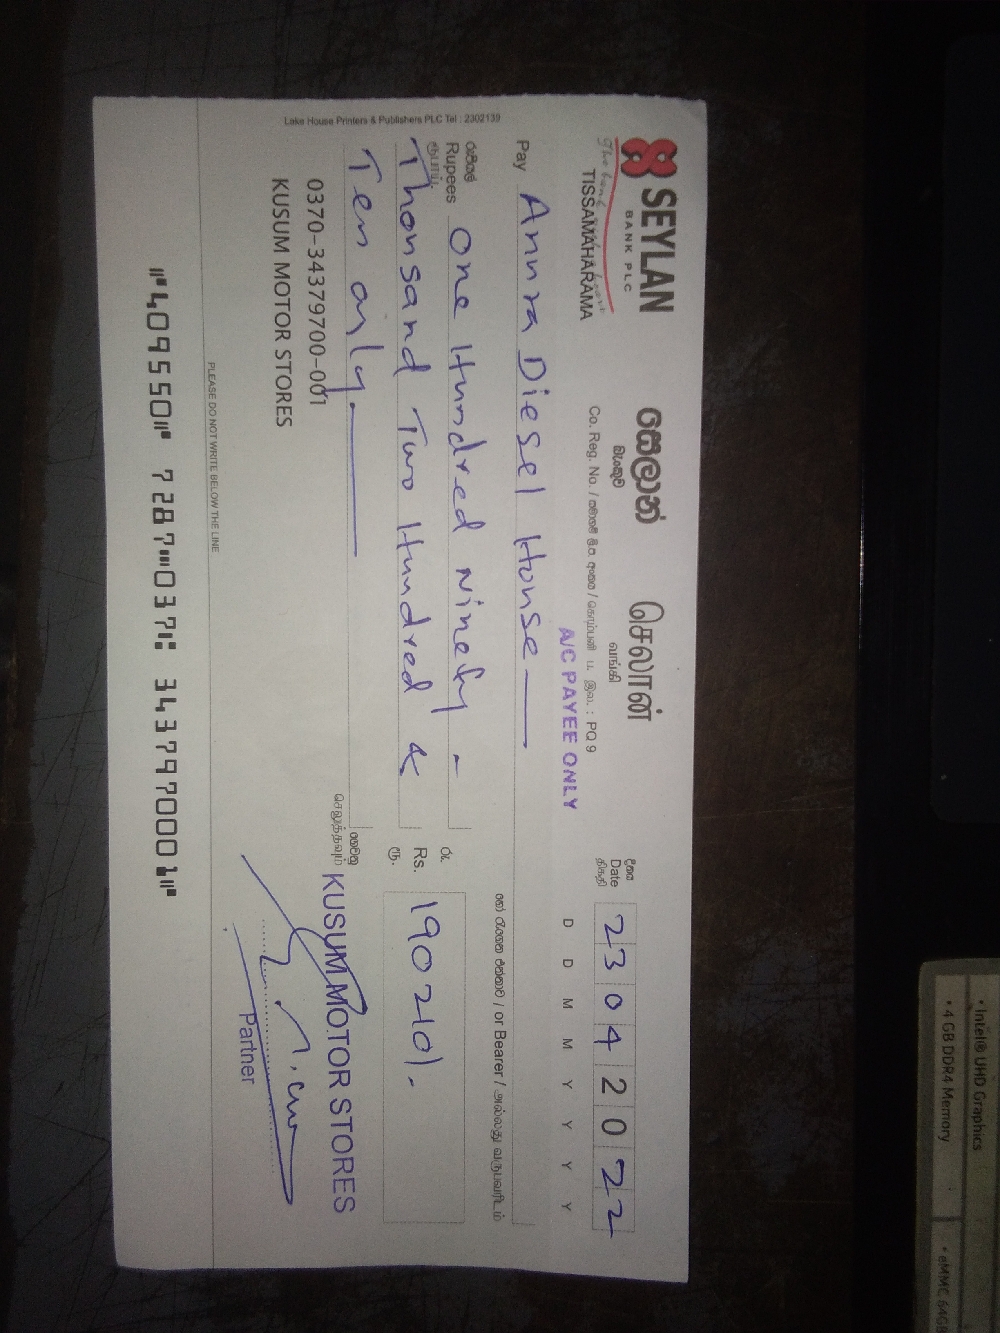 SEYLAN
BANK PLC
TISSAMAHARAMA
සෙලාන්
බැංකුව
செலான்
வங்கி
PQ 9
A/C PAYEE ONLY
දිනය
Date
திகதி
2 3 0 4 2 0 2 2
D D M M Y Y Y Y
Pay Anura Diesel House
or Bearer / அல்லது
රුපියල්
Rupees One Hundred Ninety -
ரூபாய்
Thousand Two Hundred &
Ten only.
රු.
Rs. 190210/-
ரூ.
0370-34379700-001
KUSUM MOTOR STORES
KUSUM MOTOR STORES
Partner
Lake House Printers & Publishers PLC Tel : 2302139
PLEASE DO NOT WRITE BELOW THE LINE
⑈409550⑈ 7287⑉037⑆ 343797000⁠1⑈
• Intel® UHD Graphics
• 4 GB DDR4 Memory
• eMMC 64GB